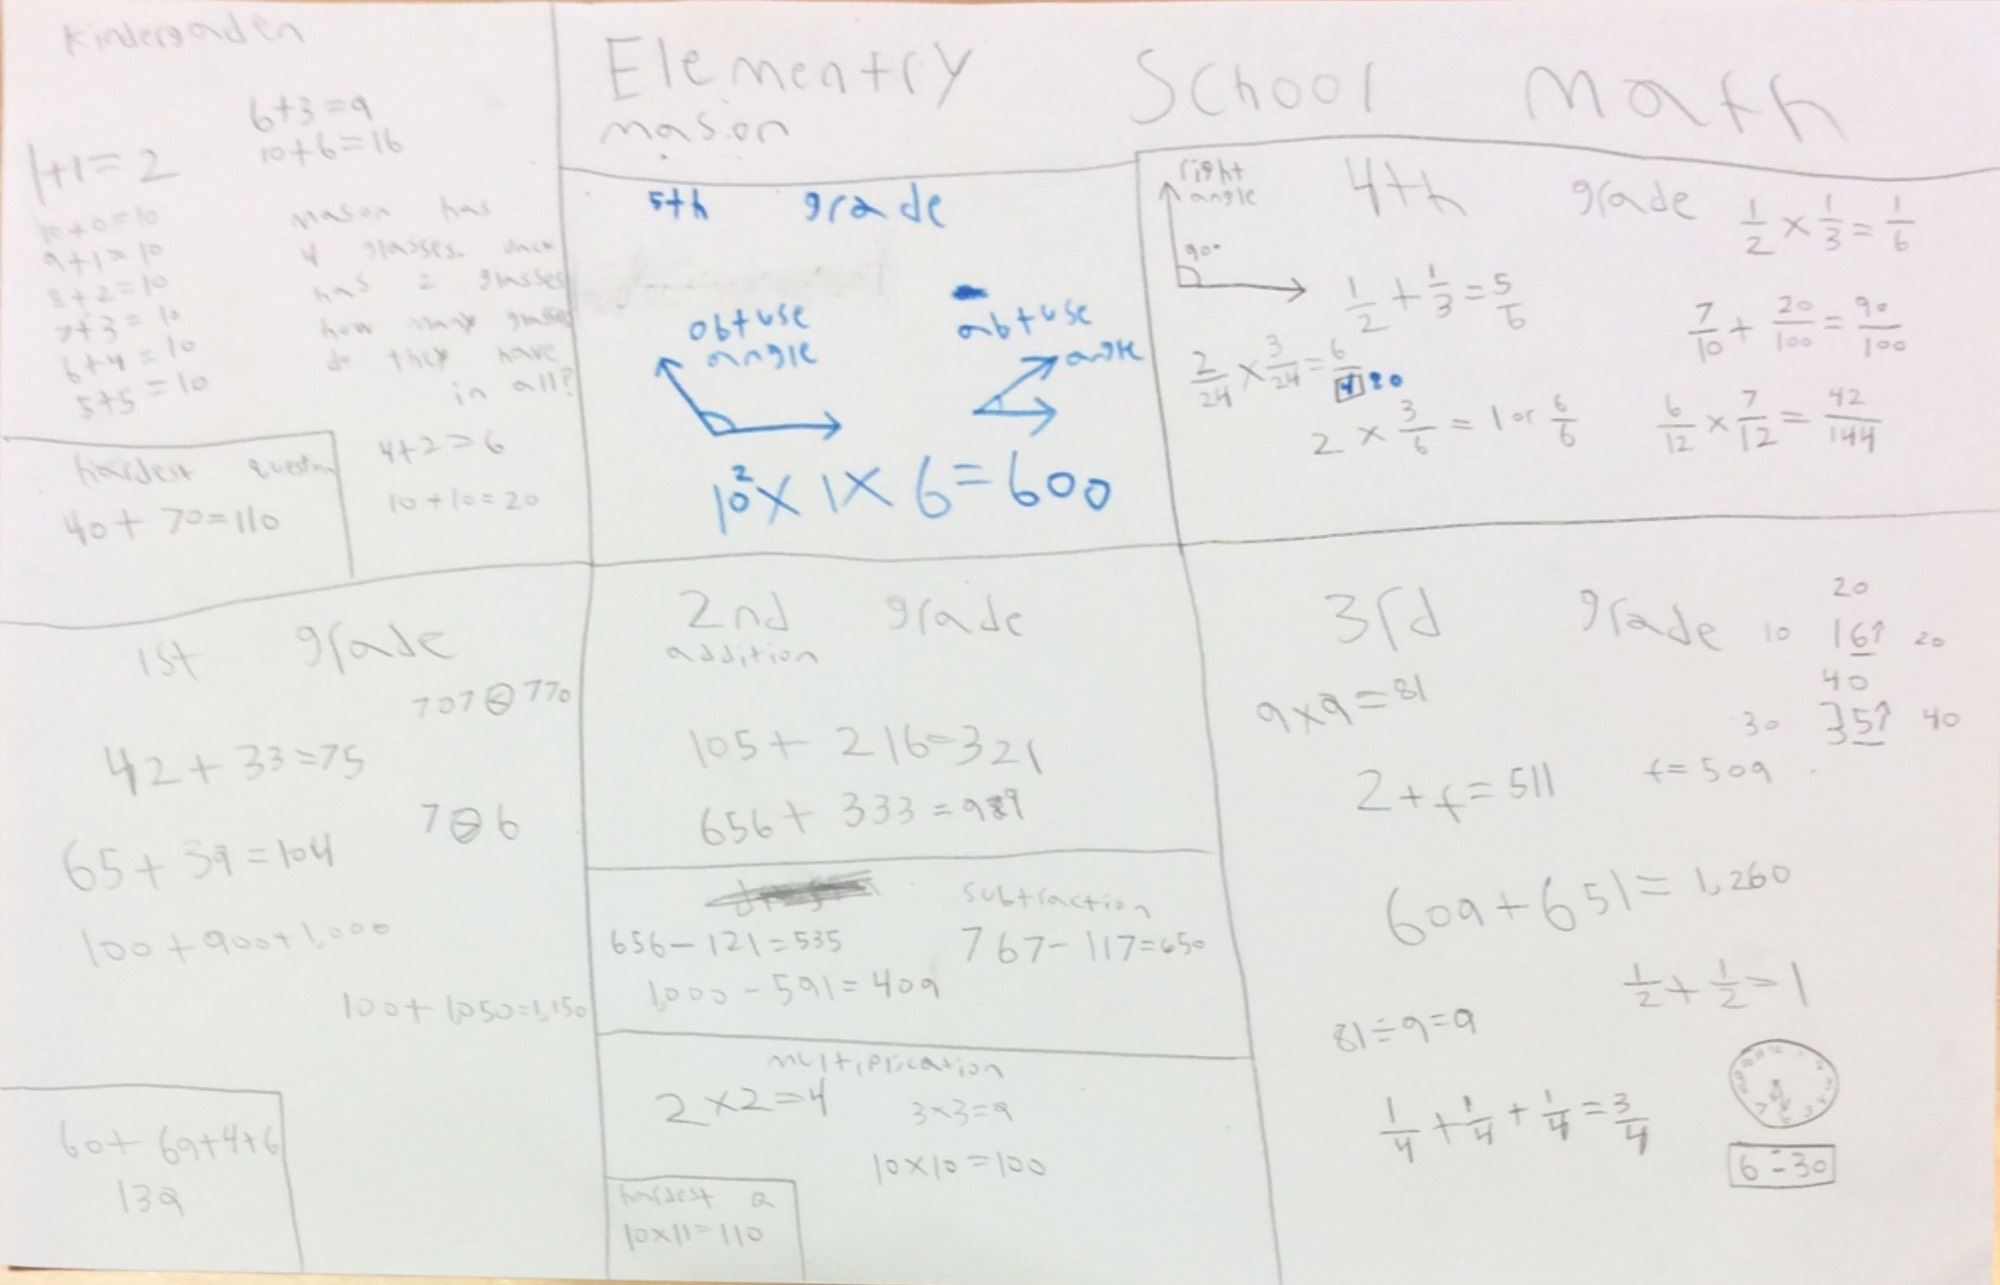 Kindergaden
6+3=9
10+6=16
1+1=2
10+0=10
9+1=10
8+2=10
7+3=10
6+4=10
5+5=10
mason has
4 glasses.
has 2 glasses
how many
do they have
in all?
4+2=6
10+10=20
hardest
40+70=110
Elementry School math
mason
5th grade
obtuse
angle
abtuse
angle
10²×1×6=600
4th grade
right
angle
90°
1/2×1/3=1/6
1/2+1/3=5/6
7/10+20/100=90/100
2/24×3/24=6/
2×3/6=1 or 6/6
6/12×7/12=42/144
1st grade
707 770
42+33=75
7 6
65+39=104
100+900+1,000
100+1,050=1,150
60+69+4+6
139
2nd grade
addition
105+216=321
656+333=989
subtraction
656-121=535
767-117=650
1,000-591=409
multiplication
2×2=4
3×3=9
10×10=100
hardest Q
10×11=110
3rd grade
20
10 16↑ 20
40
30 35↑ 40
9×9=81
2+f=511 f=509
609+651=1,260
1/2+1/2=1
81÷9=9
1/4+1/4+1/4=3/4
6:30